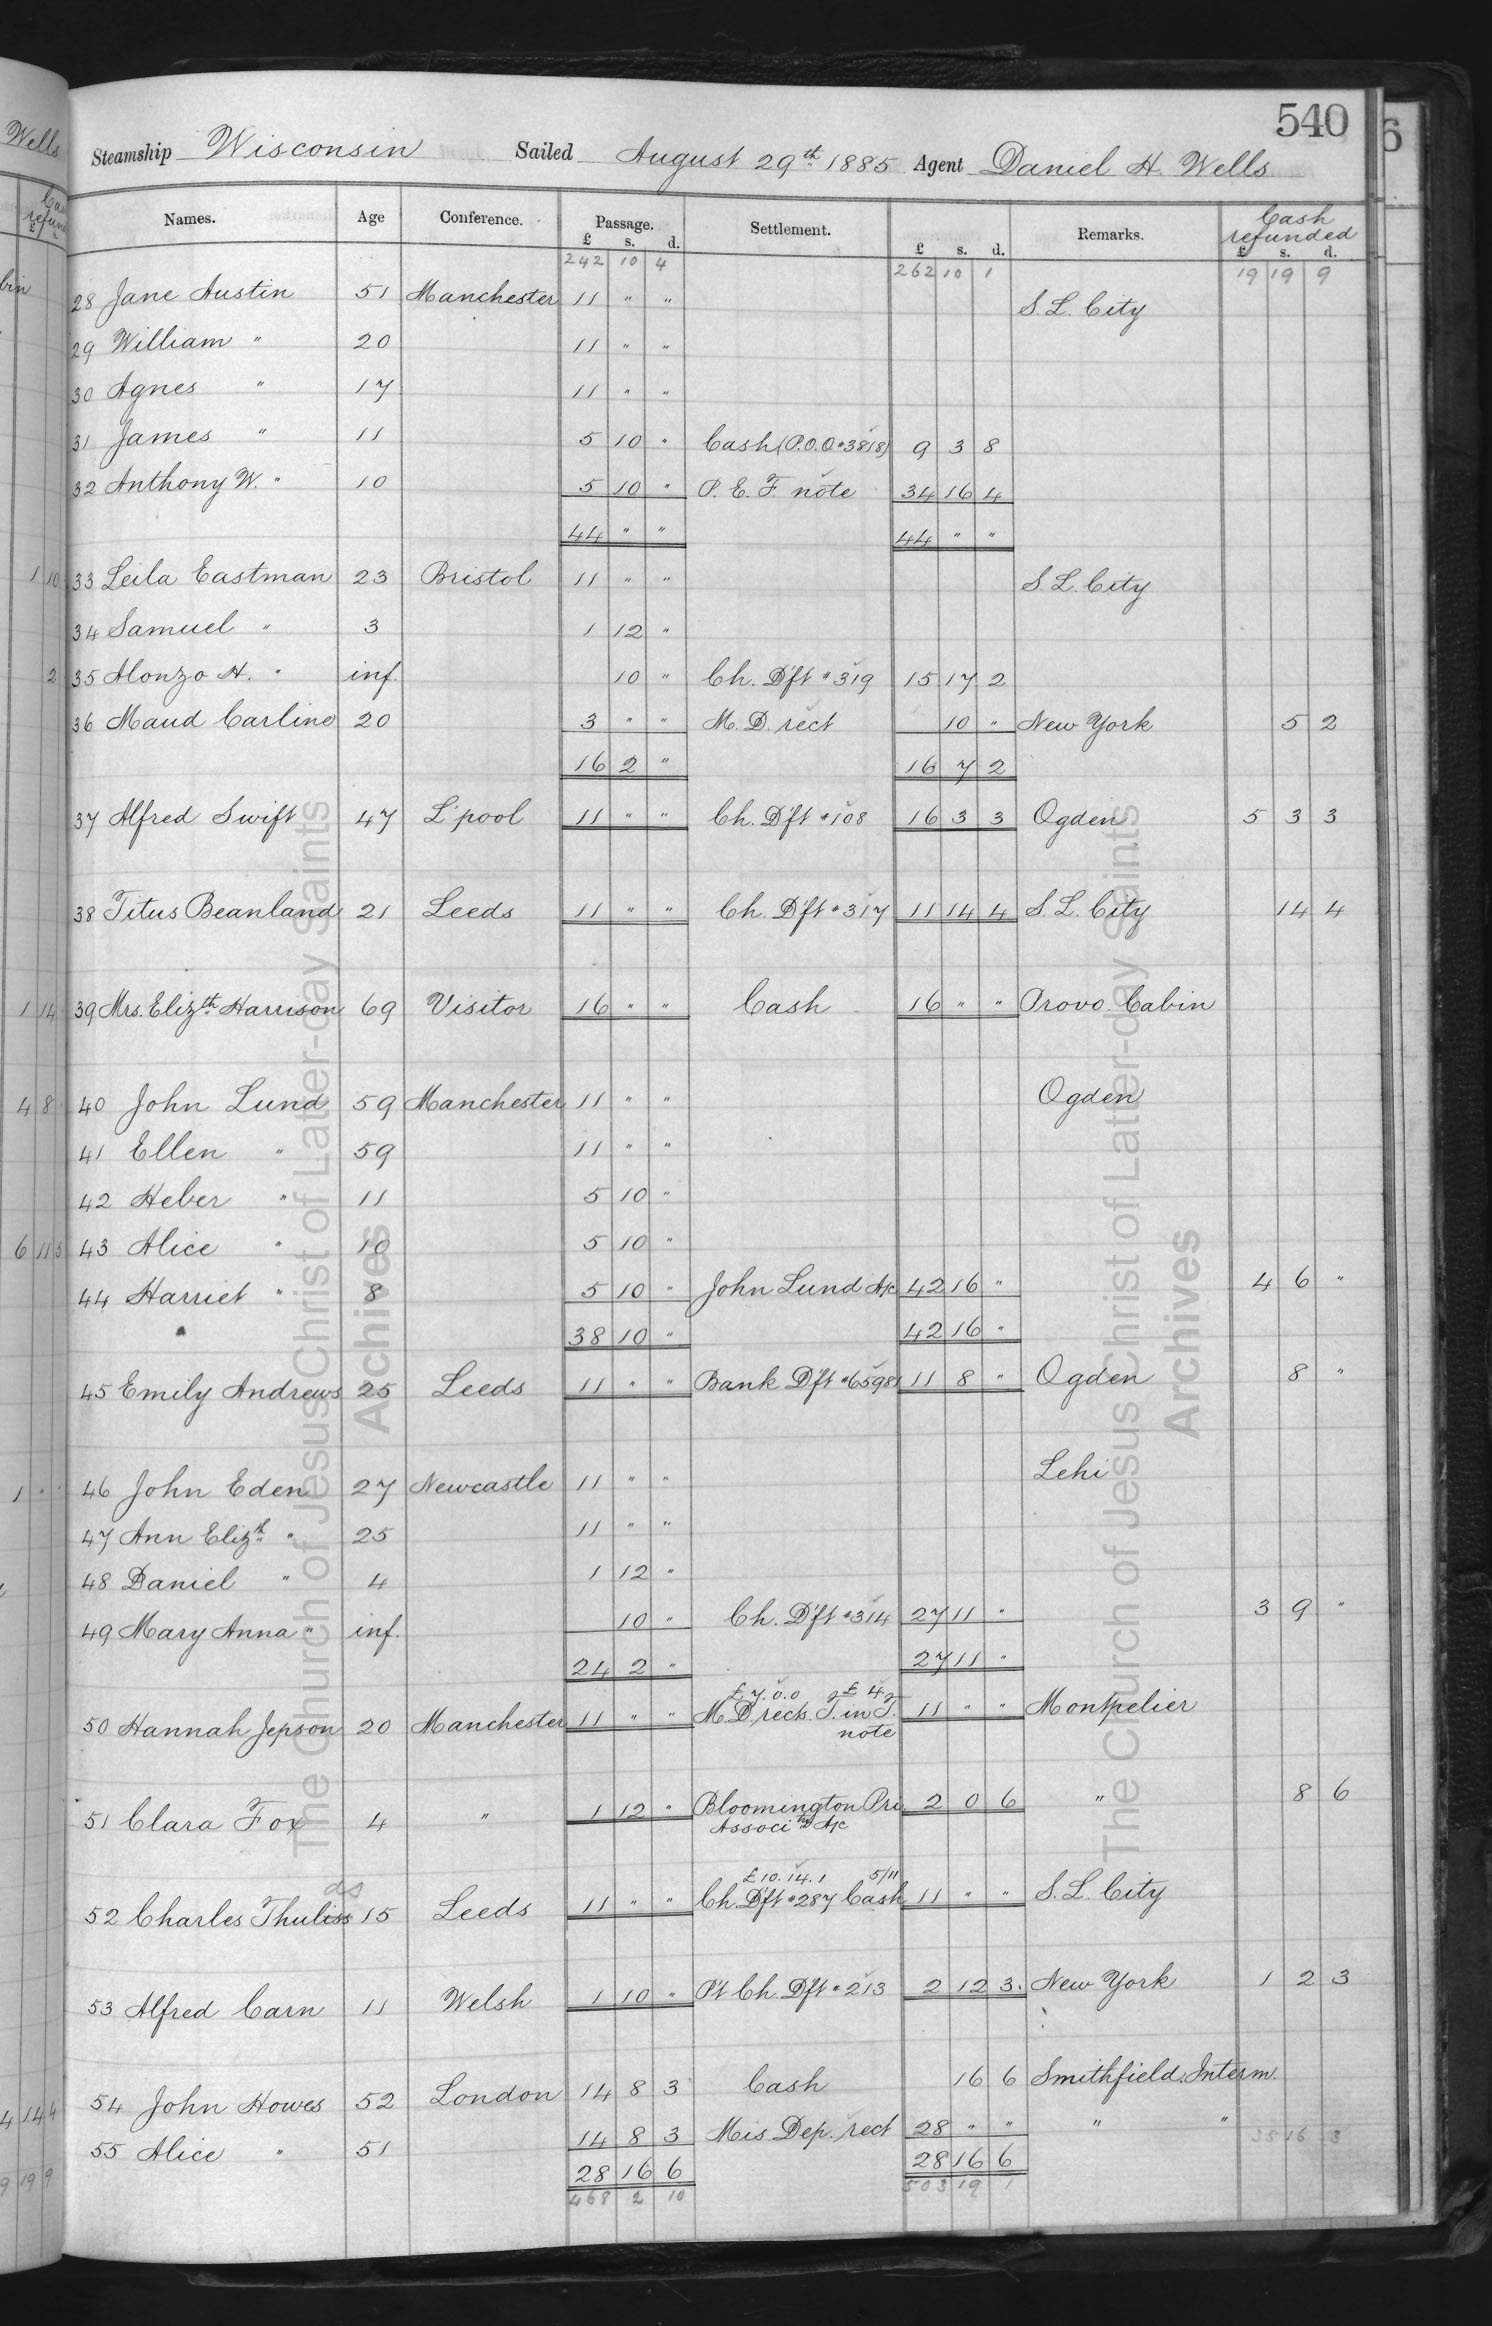 540
Steamship Wisconsin Sailed August 29th 1885 Agent Daniel H. Wells
Names. Age Conference. Passage. Settlement. Remarks. Cash refunded
£ s. d. £ s. d. £ s. d.
242 10 4 262 10 1 19 19 9
28 Jane Austin 51 Manchester 11 " " S. L. City
29 William " 20 11 " "
30 Agnes " 17 11 " "
31 James " 11 5 10 " Cash (P.O.O #3818) 9 3 8
32 Anthony W. " 10 5 10 " P. E. F note 34 16 4
44 " " 44 " "
33 Leila Eastman 23 Bristol 11 " " S. L. City
34 Samuel " 3 1 12 "
35 Alonzo H. " inf. 10 " Ch. Dft #319 15 17 2
36 Maud Carline 20 3 " " M. D. rect 10 " New York 5 2
16 2 " 16 7 2
37 Alfred Swift 47 L'pool 11 " " Ch. Dft #108 16 3 3 Ogden 5 3 3
38 Titus Beanland 21 Leeds 11 " " Ch. Dft #317 11 14 4 S. L. City 14 4
39 Mrs. Elizth Harrison 69 Visitor 16 " " Cash 16 " " Provo. Cabin
40 John Lund 59 Manchester 11 " " Ogden
41 Ellen " 59 11 " "
42 Heber " 11 5 10 "
43 Alice " 10 5 10 "
44 Harriet " 8 5 10 " John Lund A/c 42 16 " 4 6 "
38 10 " 42 16 "
45 Emily Andrews 25 Leeds 11 " " Bank Dft #6598 11 8 " Ogden 8 "
46 John Eden 27 Newcastle 11 " " Lehi
47 Ann Elizth " 25 11 " "
48 Daniel " 4 1 12 "
49 Mary Anna " inf. 10 " Ch. Dft #314 27 11 " 3 9 "
24 2 " 27 11 "
£7.0.0 £4
50 Hannah Jepson 20 Manchester 11 " " M. D. rects T. in T. 11 " " Montpelier
note
51 Clara Fox 4 " 1 12 " Bloomington Pri. 2 0 6 " 8 6
Associ A/c
£10.14.1 5/11
ds
52 Charles Thuliss 15 Leeds 11 " " Ch. Dft #287 Cash 11 " " S. L. City
53 Alfred Carn 11 Welsh 1 10 " Pt Ch. Dft #213 2 12 3. New York 1 2 3
54 John Howes 52 London 14 8 3 Cash 16 6 Smithfield, Interm.
55 Alice " 51 14 8 3 Mis Dep. rect 28 " " " " 35 16 3
28 16 6 28 16 6
468 2 10 503 19 1
The Church of Jesus Christ of Latter-day Saints
Archives
The Church of Jesus Christ of Latter-day Saints
Archives